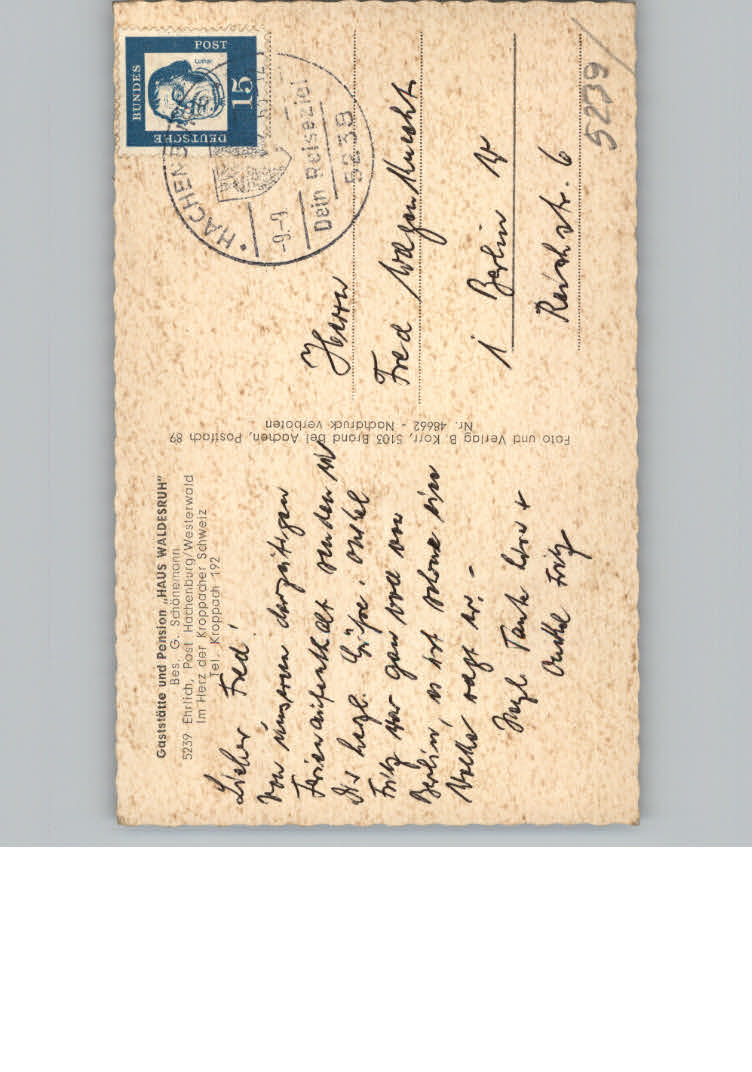 Gaststätte und Pension „HAUS WALDESRUH"
Bes. G. Schönemann
5239 Ehrlich, Post Hachenburg/Westerwald
Im Herz der Kroppacher Schweiz
Tel. Kroppach 192
Lieber Fred!
Von unserem derzeitigen
Ferienaufenthalt senden wir
Dir herzl. Grüße. Onkel
Fritz war ganz voll von
Berlin, es ist schone eine
sagt er. -
Herzl. Tante +
Onkel Fritz
Foto und Verlag B. Korr, 5103 Brand bei Aachen, Postfach 89
Nr. 48662 - Nachdruck verboten
DEUTSCHE
BUNDES
POST
15
Luther
HACHENBURG
-9.-9
Dein Reiseziel
5238
Herrn
Fred Wagenknecht
1 Berlin
Reichstr. 6
5239/